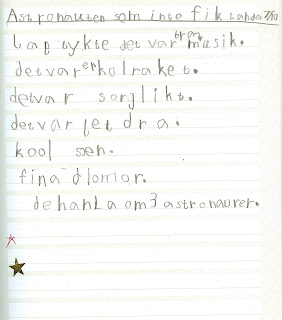 Astronauten som inte fik Landa 7/12
Jag tykte det var bra musik.
det var en kol raket.
det var sorjlikt.
det var jet bra.
kool sen.
fina blomor.
de hanLa om 3 astronaurer.